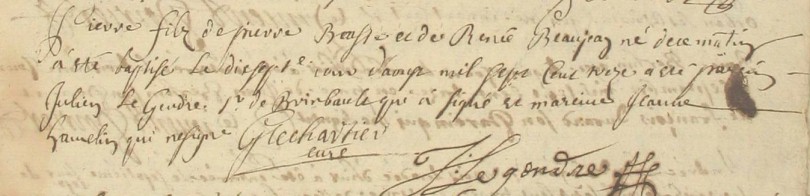 Pierre filz de pierre Bousse et de Renée Beaujean né de ce matin
a été baptisé le dixsept.e jour d'aout mil sept cent treze a été parein
Julien Le Gendre S.r de Boirbault qui a signé et mareine Jeanne
hamelin qui ne signe G Lechartier
curé
J: Legendre